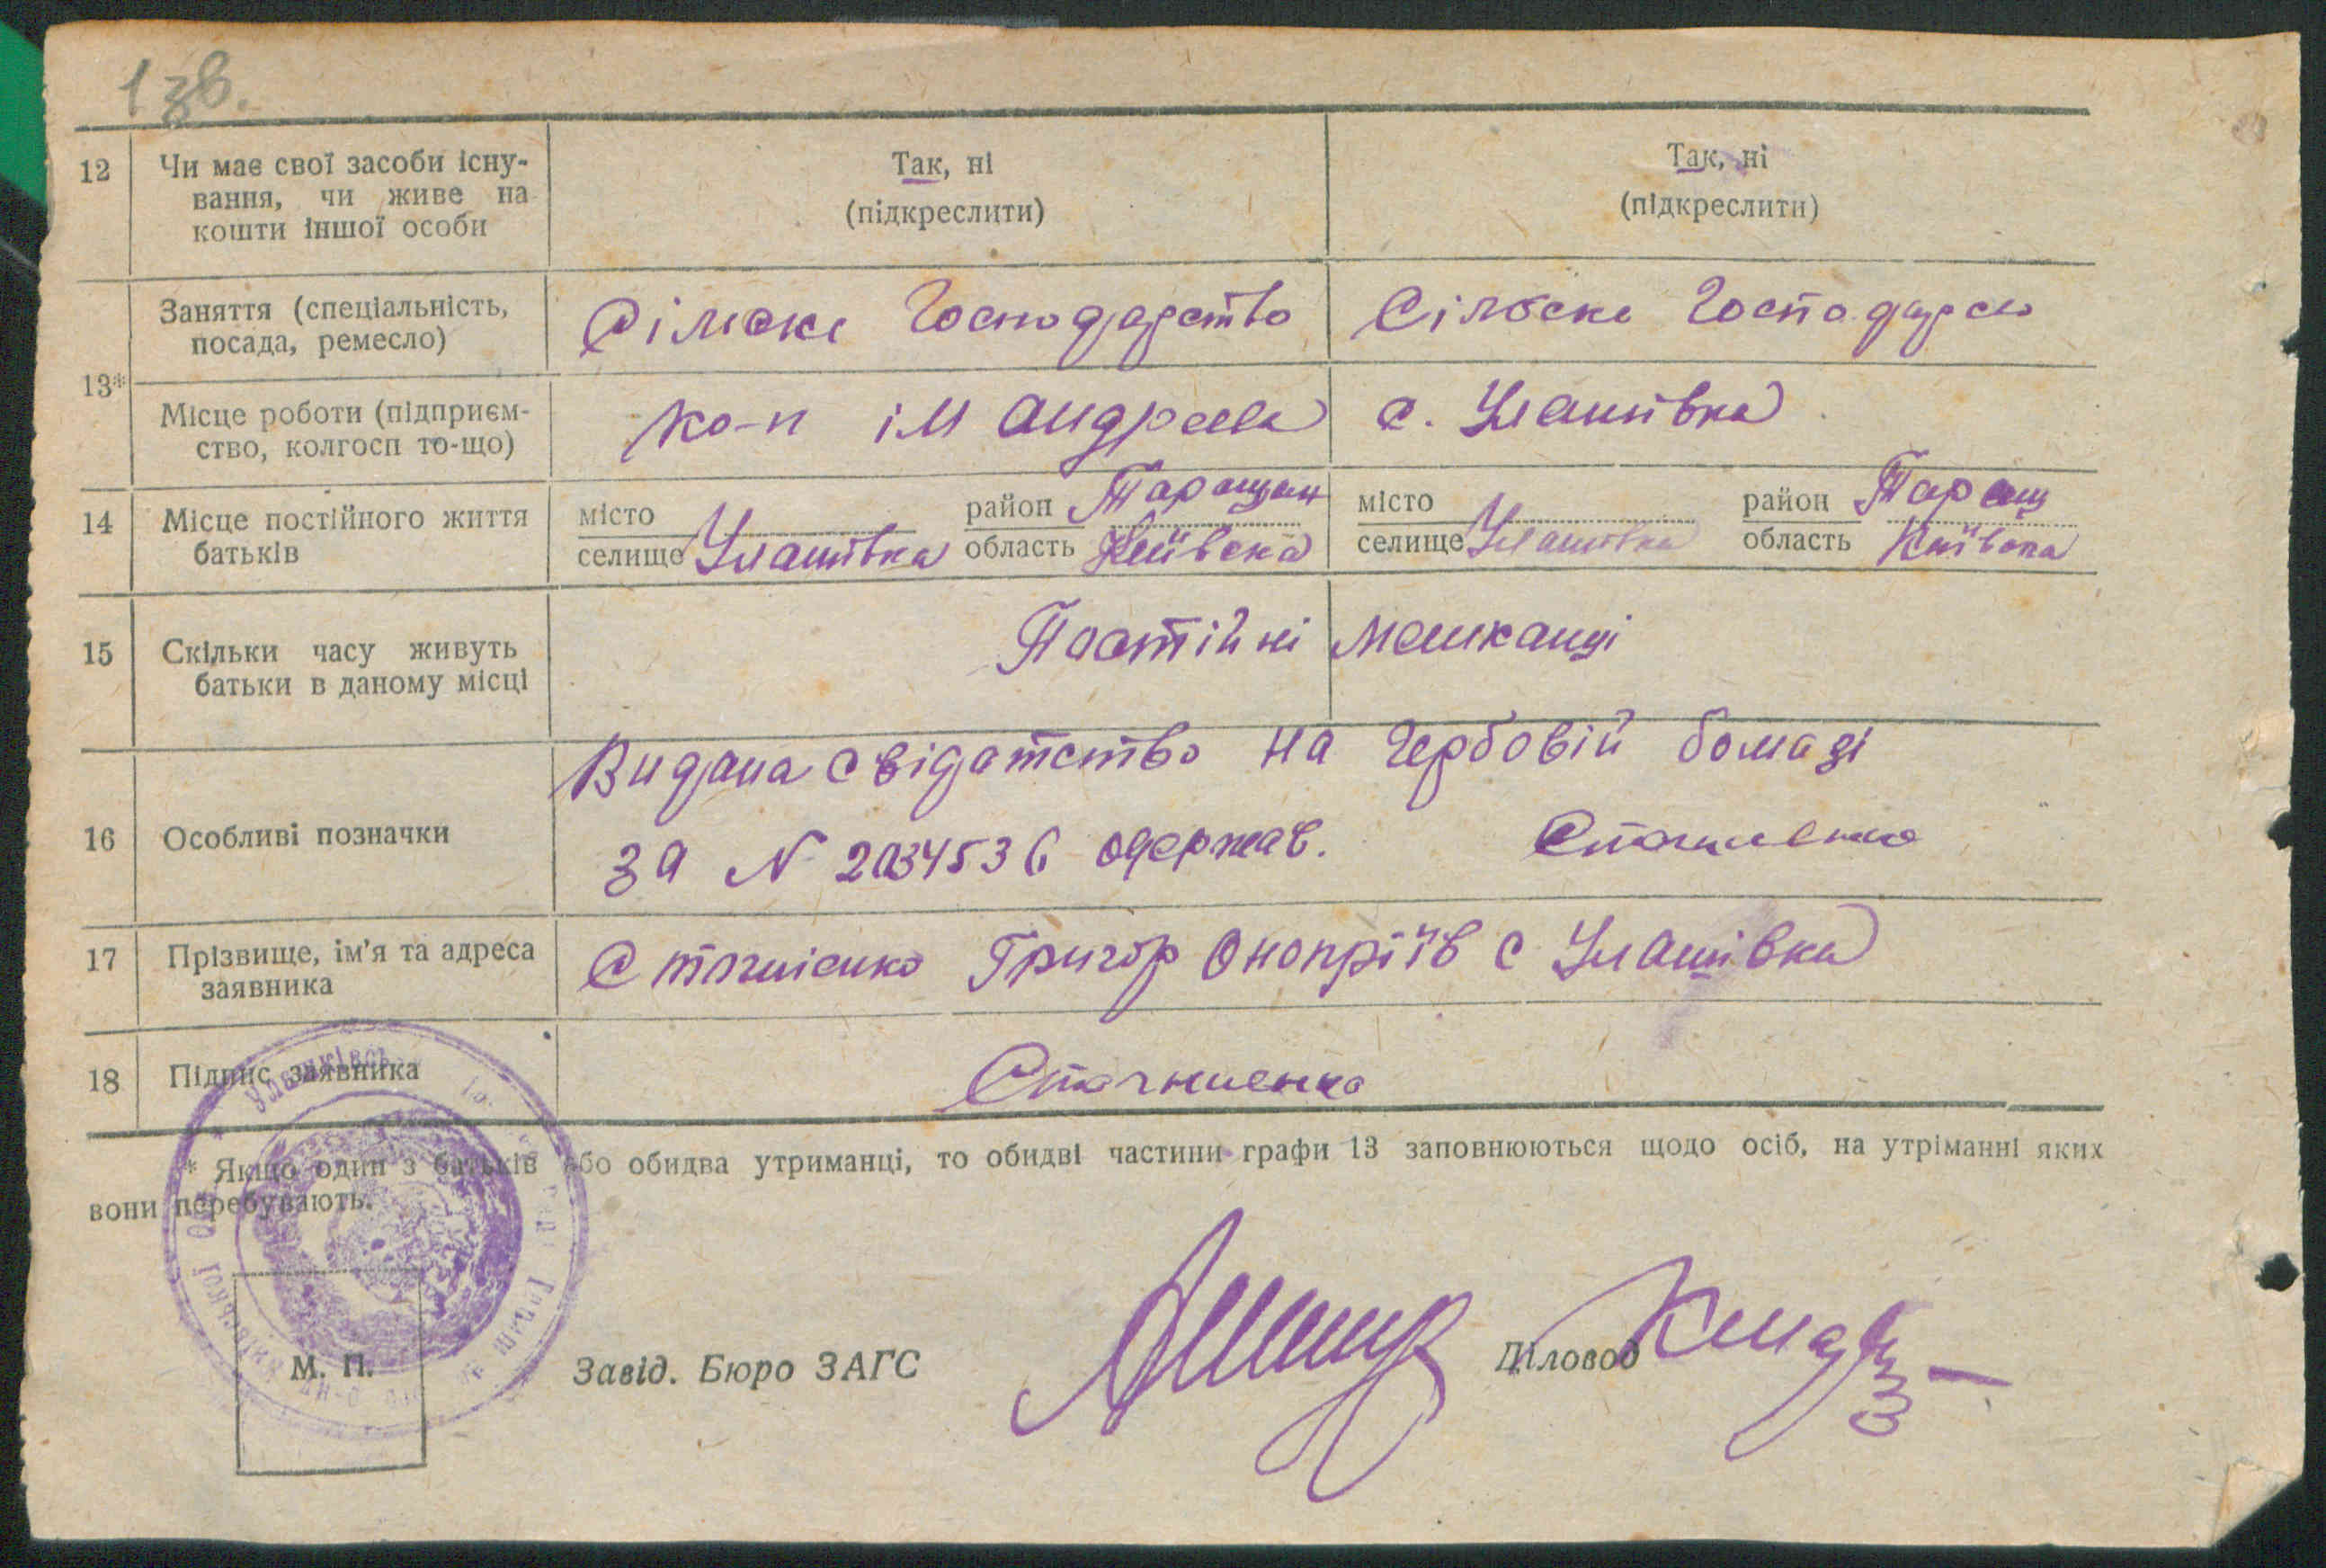 138.
12 Чи має свої засоби існу-
вання, чи живе на
кошти іншої особи
Так, ні
(підкреслити)
Так, ні
(підкреслити)
13*
Заняття (спеціальність,
посада, ремесло)
Сільске Господарство
Сільське Господарсв
Місце роботи (підприєм-
ство, колгосп то-що)
ко-п ім Андреева
с. Улашівка
14 Місце постійного життя
батьків
місто
селище Улашівка
район Таращан
область Київска
місто
селище Улашівка
район Таращ
область Київска
15 Скільки часу живуть
батьки в даному місці
Постійні мешканці
16 Особливі позначки
Видана свідатство на гербовій бомазі
за № 2034536 одержав.
17 Прізвище, ім'я та адреса
заявника
Григор Онопріїв с Улашівка
18 Підпис заявника
* Якщо один з батьків або обидва утриманці, то обидві частини графи 13 заповнюються щодо осіб, на утріманні яких
вони перебувають.
М. П.
Завід. Бюро ЗАГС
Діловод